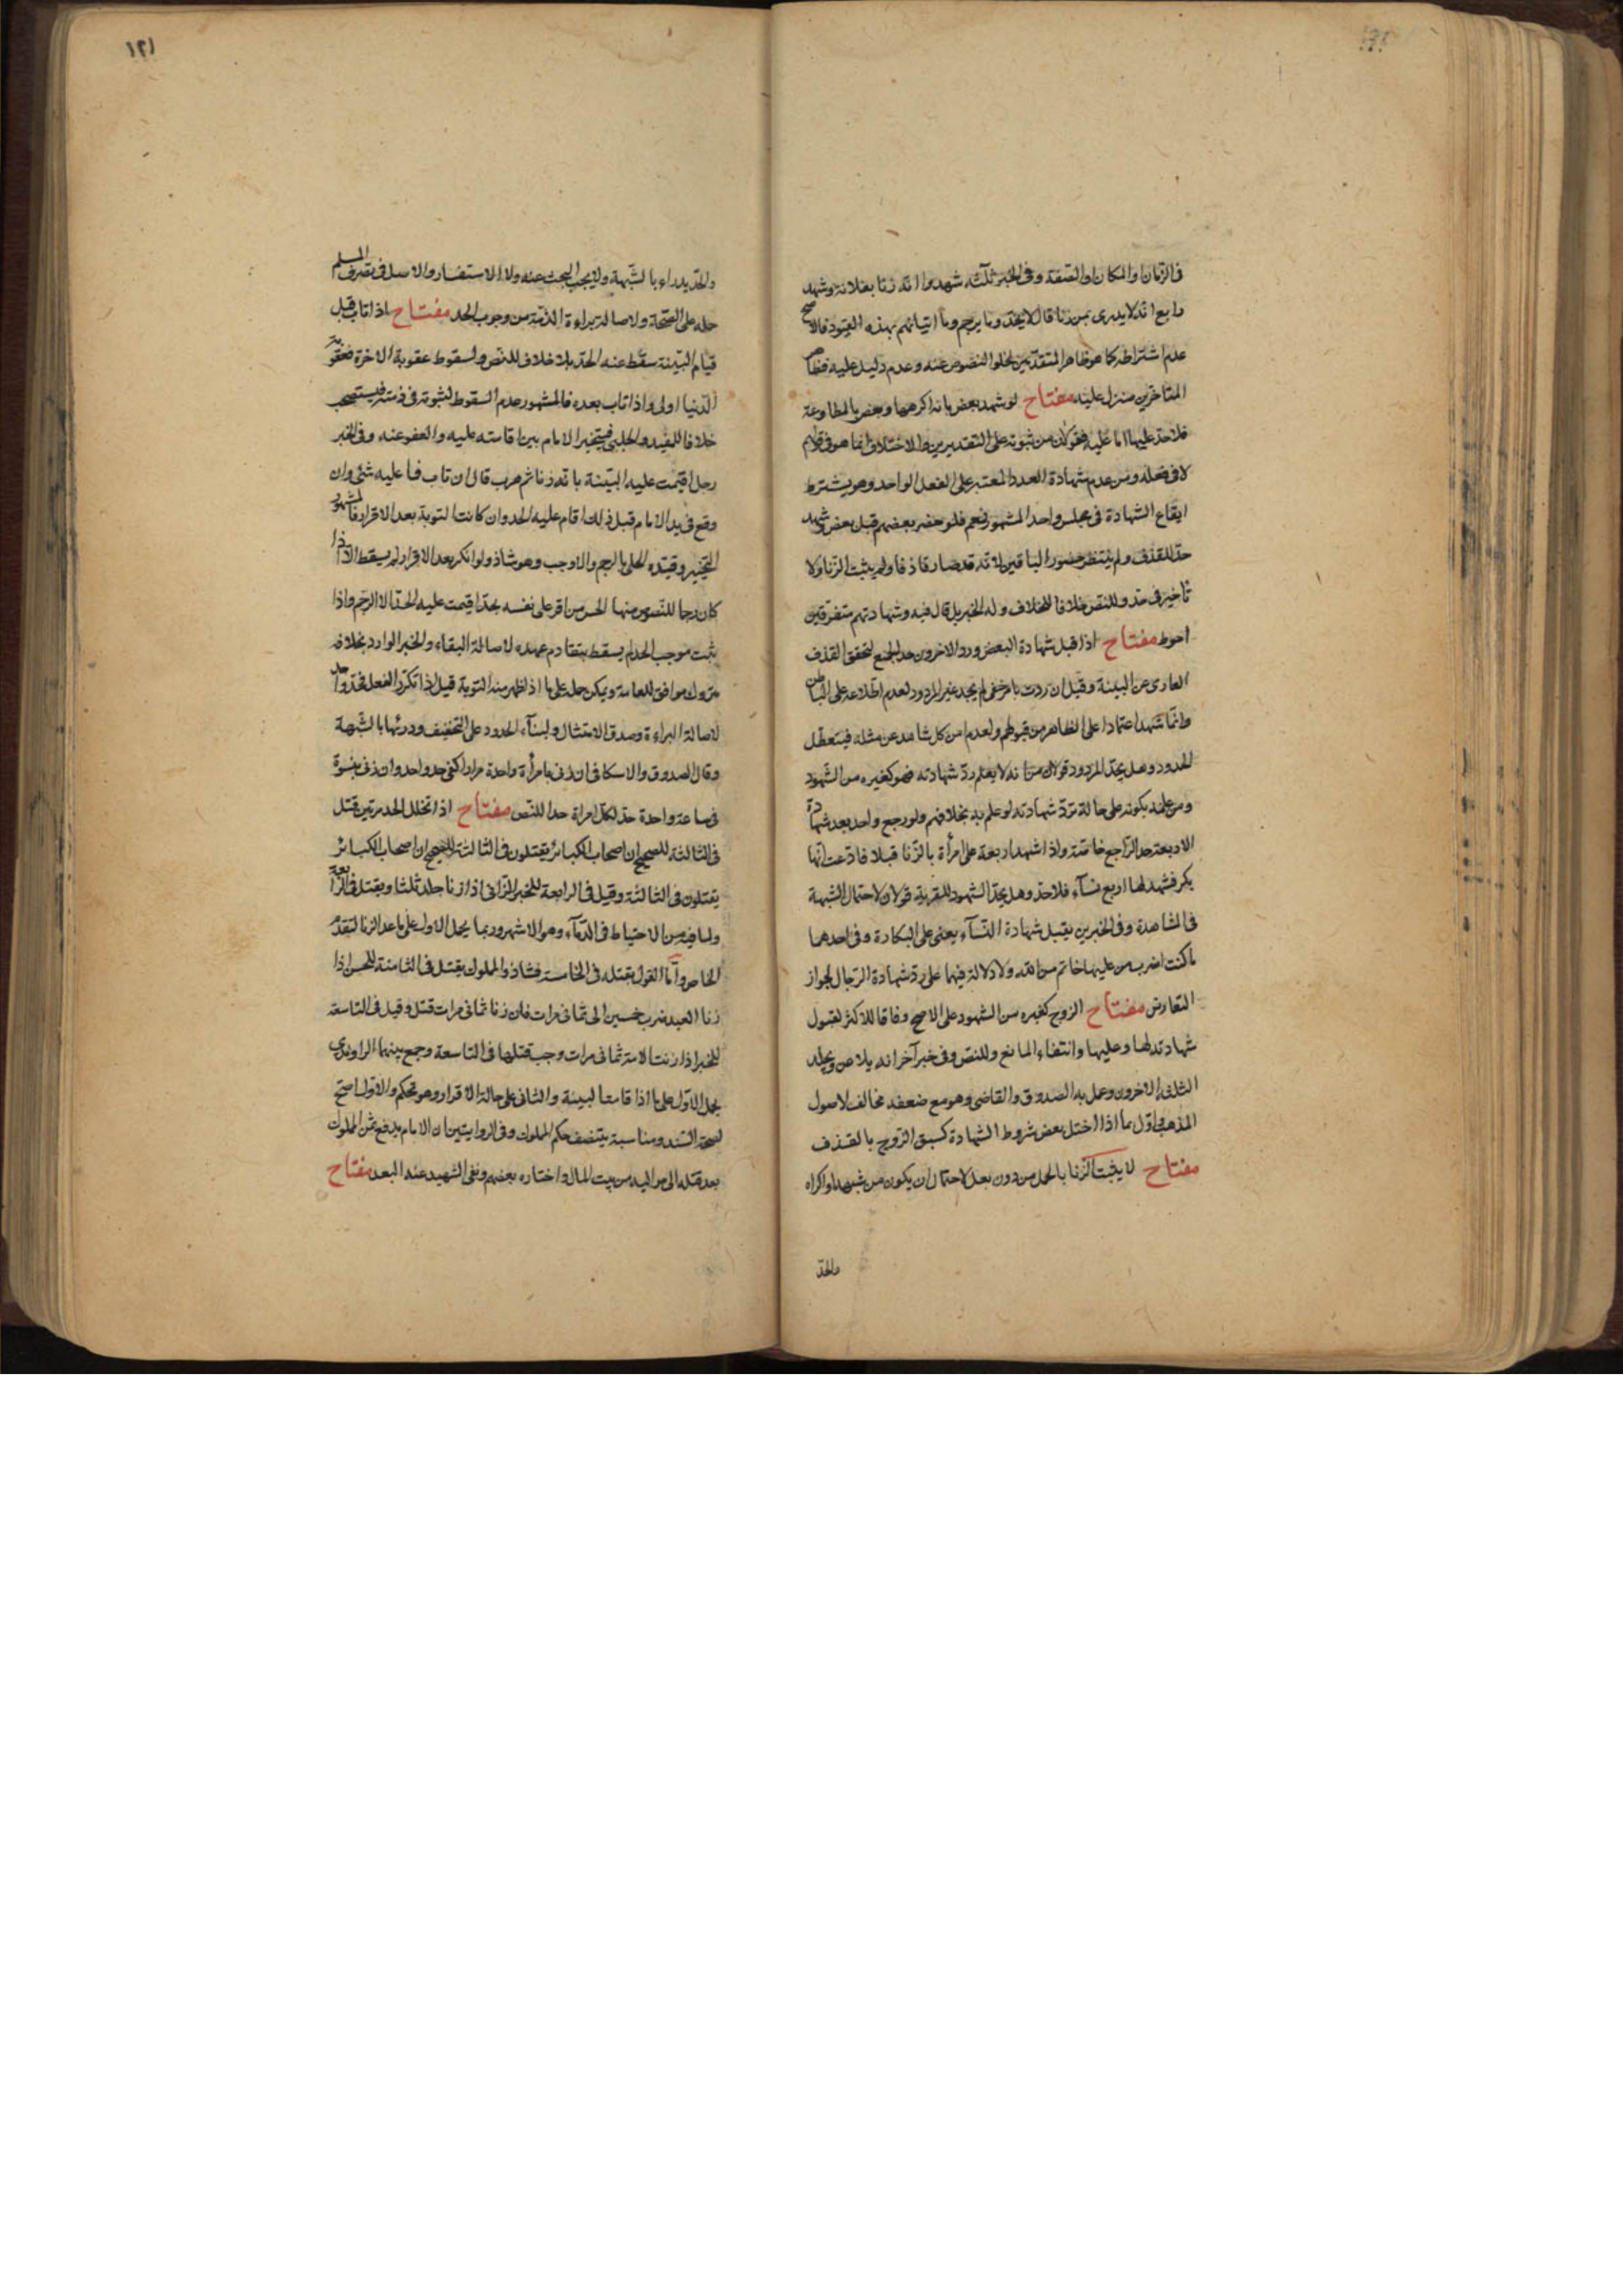 فى الزمان والمكان والصفة وفى الخبر ثلثة شهدوا انه زنا بفلانة وشهد
رابع انه لا يدرى بمن زنا قال لا يحد وما يرجم وما اتيانهم بهذه القيود فالاصح
عدم اشتراطه كما هو ظاهر المتقدمين لخلو النصوص عنه وعدم دليل عليه فظاهر
المتاخرين منزل عليه مفتاح لو شهد بعض بانه اكرهها وبعض بالمطاوعة
فلا حد عليها اما عليه فقولان من ثبوته على التقديرين والاختلاف انما هو فى
لا فى فعله ومن عدم شهادة العدد المعتبر على الفعل الواحد وهو يشترط
ايقاع الشهادة فى مجلس واحد المشهور نعم فلو حضر بعضهم قبل بعض وشهد
حد للقذف ولم ينتظر حضور الباقين لانه قد صار قاذفا ولم يثبت الزنا ولا
تأخير فى حد وللنص خلافا للخلاف وله الخبر بل قال فيه وشهادتهم متفرقين
احوط مفتاح اذا قبل شهادة البعض ورد الاخرون حد الجميع لتحقق القذف
العارى عن البينة وقيل ان ردت بامر خفى لم يحد غير المردود لعدم اطلاعه على الباطن
وانما شهد اعتمادا على الظاهر من قبولهم ولعدم امن كل شاهد عن مثله فيتعطل
الحدود وهل يحد المردود قولان من انه لا يعلم رد شهادته فهو كغيره من الشهود
ومن علمه بكونه على حالة ترد شهادته لو علم به بخلافهم ولو رجع واحد بعد شهادة
الاربعة حد الراجع خاصة واذا شهد اربعة على امرأة بالزنا قبلا فادعت انها
بكر فشهد لها اربع نسآء فلا حد وهل يحد الشهود للفرية قولان لاحتمال الشبهة
فى المشاهدة وفى الخبرين يقبل شهادة النسآء يعنى على البكارة وفى احدهما
ما كنت اضرب من عليها خاتم من الله ولا دلالة فيهما على رد شهادة الرجال لجواز
التعارض مفتاح الزوج كغيره من الشهود على الاصح وفاقا للاكثر لقبول
شهادته لها وعليها وانتفاء المانع وللنص وفى خبر آخر انه يلاعن ويجلد
الثلثة الاخرون وعمل به الصدوق والقاضى وهو مع ضعفه مخالف لاصول
المذهب واول بما اذا اختل بعض شروط الشهادة كسبق الزوج بالقذف
مفتاح لا يثبت الزنا بالحمل من دون بعل لاحتمال ان يكون من شبهة او اكراه
والحد
١٢١
والحد يدراء بالشبهة ولا يجب البحث عنه ولا الاستفسار والاصل فى تصرف المسلم
حمله على الصحة ولاصالة براءة الذمة من وجوب الحد مفتاح اذا تاب قبل
قيام البينة سقط عنه الحد بلا خلاف للنص ولسقوط عقوبة الاخرة فعقوبة
الدنيا اولى واذا تاب بعده فالمشهور عدم السقوط لثبوته فى ذمته فيستصحب
خلافا للمفيد والحلبى فيتخير الامام بين اقامته عليه والعفو عنه وفى الخبر
رجل اقيمت عليه البينة بانه زنا ثم هرب قال ان تاب فما عليه شئ وان
وقع فى يد الامام قبل ذلك اقام عليه الحد وان كانت التوبة بعد الاقرار فالمشهور
التخيير وقيده الحلى بالرجم والا وجب وهو شاذ ولو انكر بعد الاقرار لم يسقط الا اذا
كان رجما للنصوص منها الحسن من اقر على نفسه بحد اقيمت عليه الحد الا الرجم واذا
ثبت موجب الحد لم يسقط بتقادم عهده لاصالة البقاء والخبر الوارد بخلافه
متروك موافق للعامة ويمكن حمله على ما اذا ظهر منه التوبة قيل اذا تكرر الفعل فحد واحد
لاصالة البراءة وصدق الامتثال ولبنآء الحدود على التخفيف ودرئها بالشبهة
وقال الصدوق والاسكافى ان زنى بامرأة واحدة مرارا كفى حد واحد وان زنى بنسوة
فى ساعة واحدة حد لكل امراة حدا للنص مفتاح اذا تخلل الحد مرتين قتل
فى الثالثة للصحيح ان اصحاب الكبائر يقتلون فى الثالثة للصحيح ان اصحاب الكبائر
يقتلون فى الثالثة وقيل فى الرابعة للخبر الزانى اذا زنا جلد ثلثا ويقتل فى الرابعة
ولما فيه من الاحتياط فى الدمآء وهو الاشهر وربما يحمل الاول على ما عدا الزنا لتقدم
الخاص واما القول بقتله فى الخامسة فشاذ والمملوك يقتل فى الثامنة للحسن اذا
زنا العبد ضرب خمسين الى ثمانى مرات فان زنا ثمانى مرات قتل وقيل فى التاسعة
للخبر اذا زنت الامة ثمانى مرات وجب قتلها فى التاسعة وجمع بينهما الراوندى
بحمل الاول على ما اذا قامت البينة والثانى على حالة الاقرار وهو تحكم والاول اصح
لصحة السند ومناسبة يتنصف حكم المملوك وفى الروايتين ان الامام يدفع ثمن المملوك
بعد قتله الى مواليه من بيت المال واختاره بعضهم ونفى الشهيد عنه البعد مفتاح